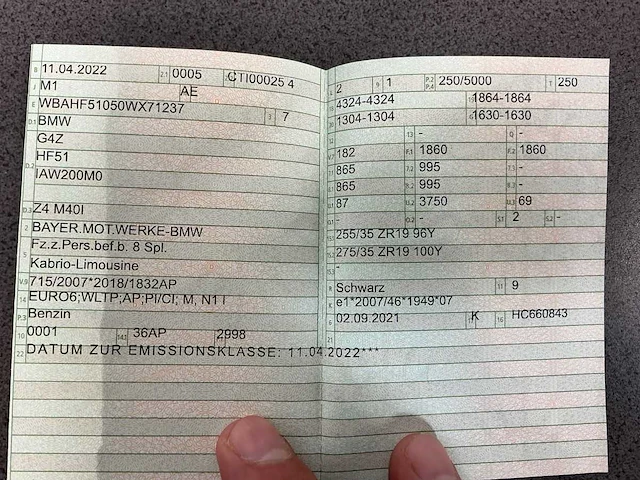 B 11.04.2022 2.1 0005 CTI00025 4
J M1 AE
E WBAHF51050WX71237 3 7
D.1 BMW
G4Z
D.2 HF51
IAW200M0
D.3 Z4 M40I
2 BAYER.MOT.WERKE-BMW
5 Fz.z.Pers.bef.b. 8 Spl.
Kabrio-Limousine
V.9 715/2007*2018/1832AP
14 EURO6;WLTP;AP;PI/CI; M, N1 I
P.3 Benzin
10 0001 14.1 36AP 2998
22 DATUM ZUR EMISSIONSKLASSE: 11.04.2022***
2 9 1 P.2 P.4 250/5000 T 250
4324-4324 1864-1864
1304-1304 1630-1630
13 - Q -
V.7 182 F.1 1860 F.2 1860
865 7.2 995 -
865 8.2 995 -
87 3750 69
- O.2 - S.1 2 S.2 -
255/35 ZR19 96Y
275/35 ZR19 100Y
-
R Schwarz 11 9
K e1*2007/46*1949*07
6 02.09.2021 K 16 HC660843
21